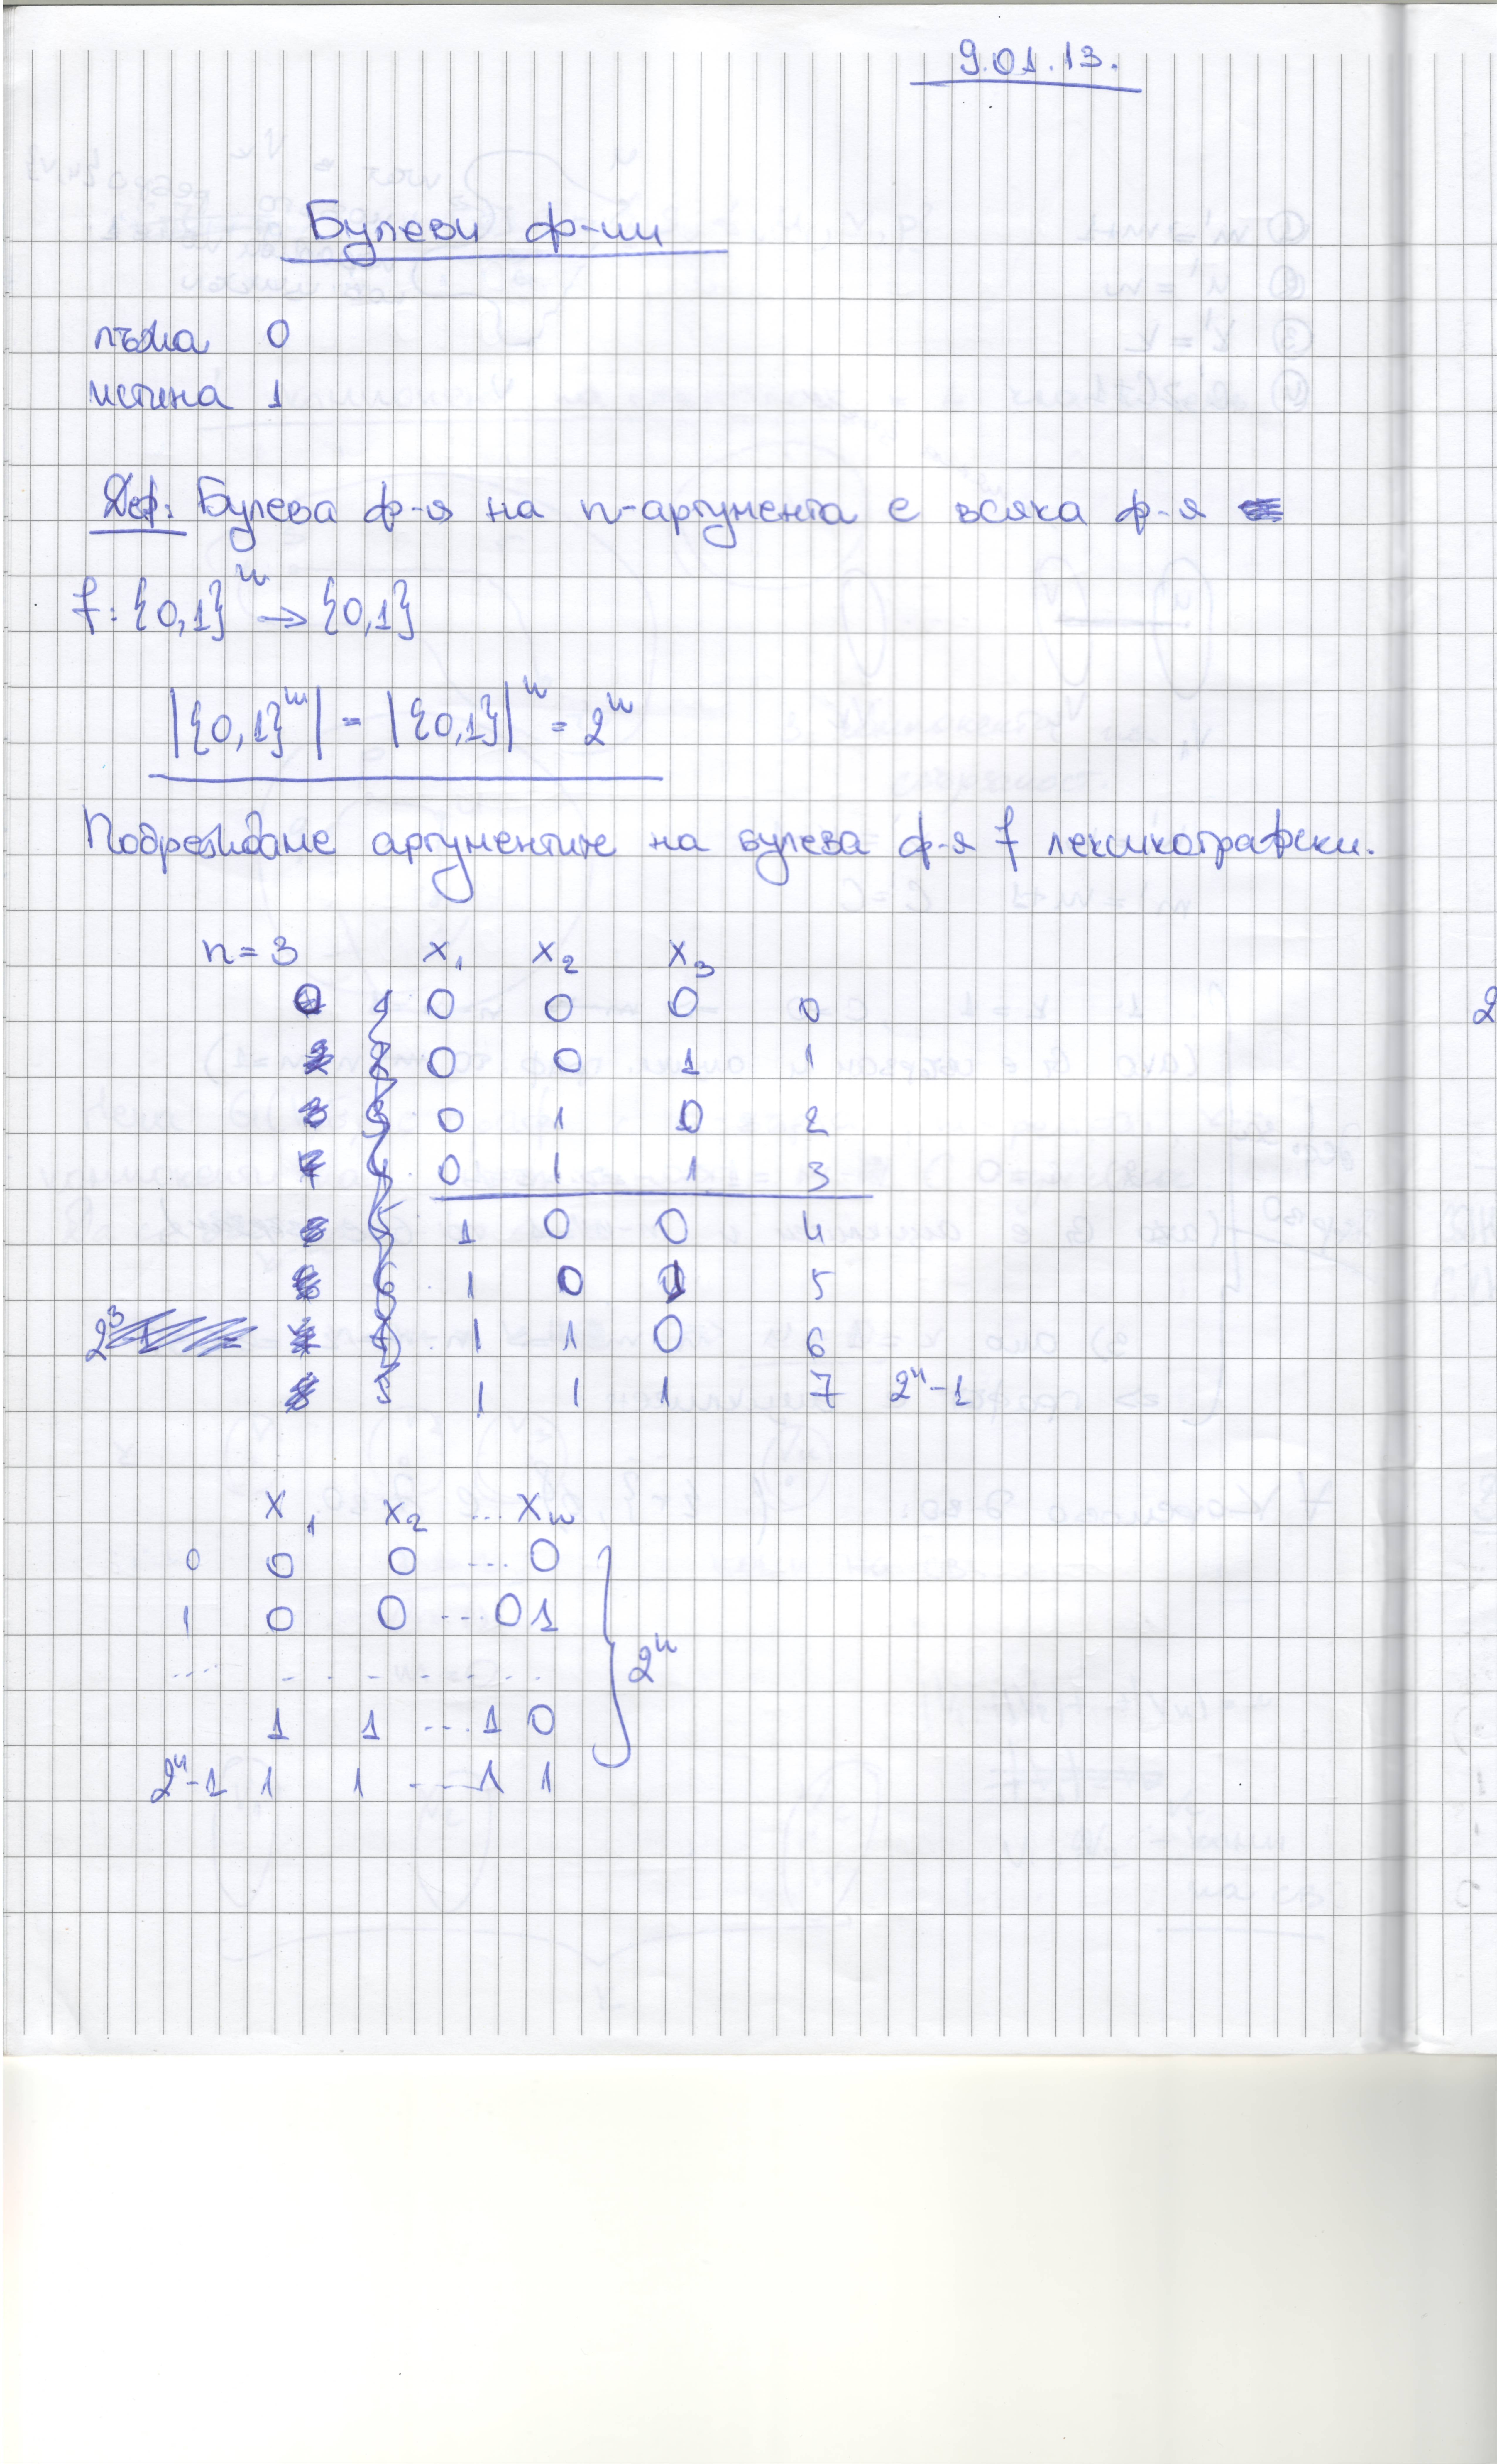 9.01.13.
Булеви ф-ии
лъжа 0
истина 1
Деф: Булева ф-я на n-аргумента е всяка ф-я
f: {0,1}ⁿ → {0,1}
|{0,1}ⁿ| = |{0,1}|ⁿ = 2ⁿ
Подреждаме аргументите на булева ф-я f лексикографски.
n=3 x₁ x₂ x₃
0 0 0 0
0 0 1 1
0 1 0 2
0 1 1 3
1 0 0 4
1 0 1 5
2³ 1 1 0 6
1 1 1 7 2ⁿ-1
x₁ x₂ ... xₙ
0 0 0 ... 0
1 0 0 ... 0 1
... . . . . . . . . 2ⁿ
1 1 ... 1 0
2ⁿ-1 1 1 ... 1 1